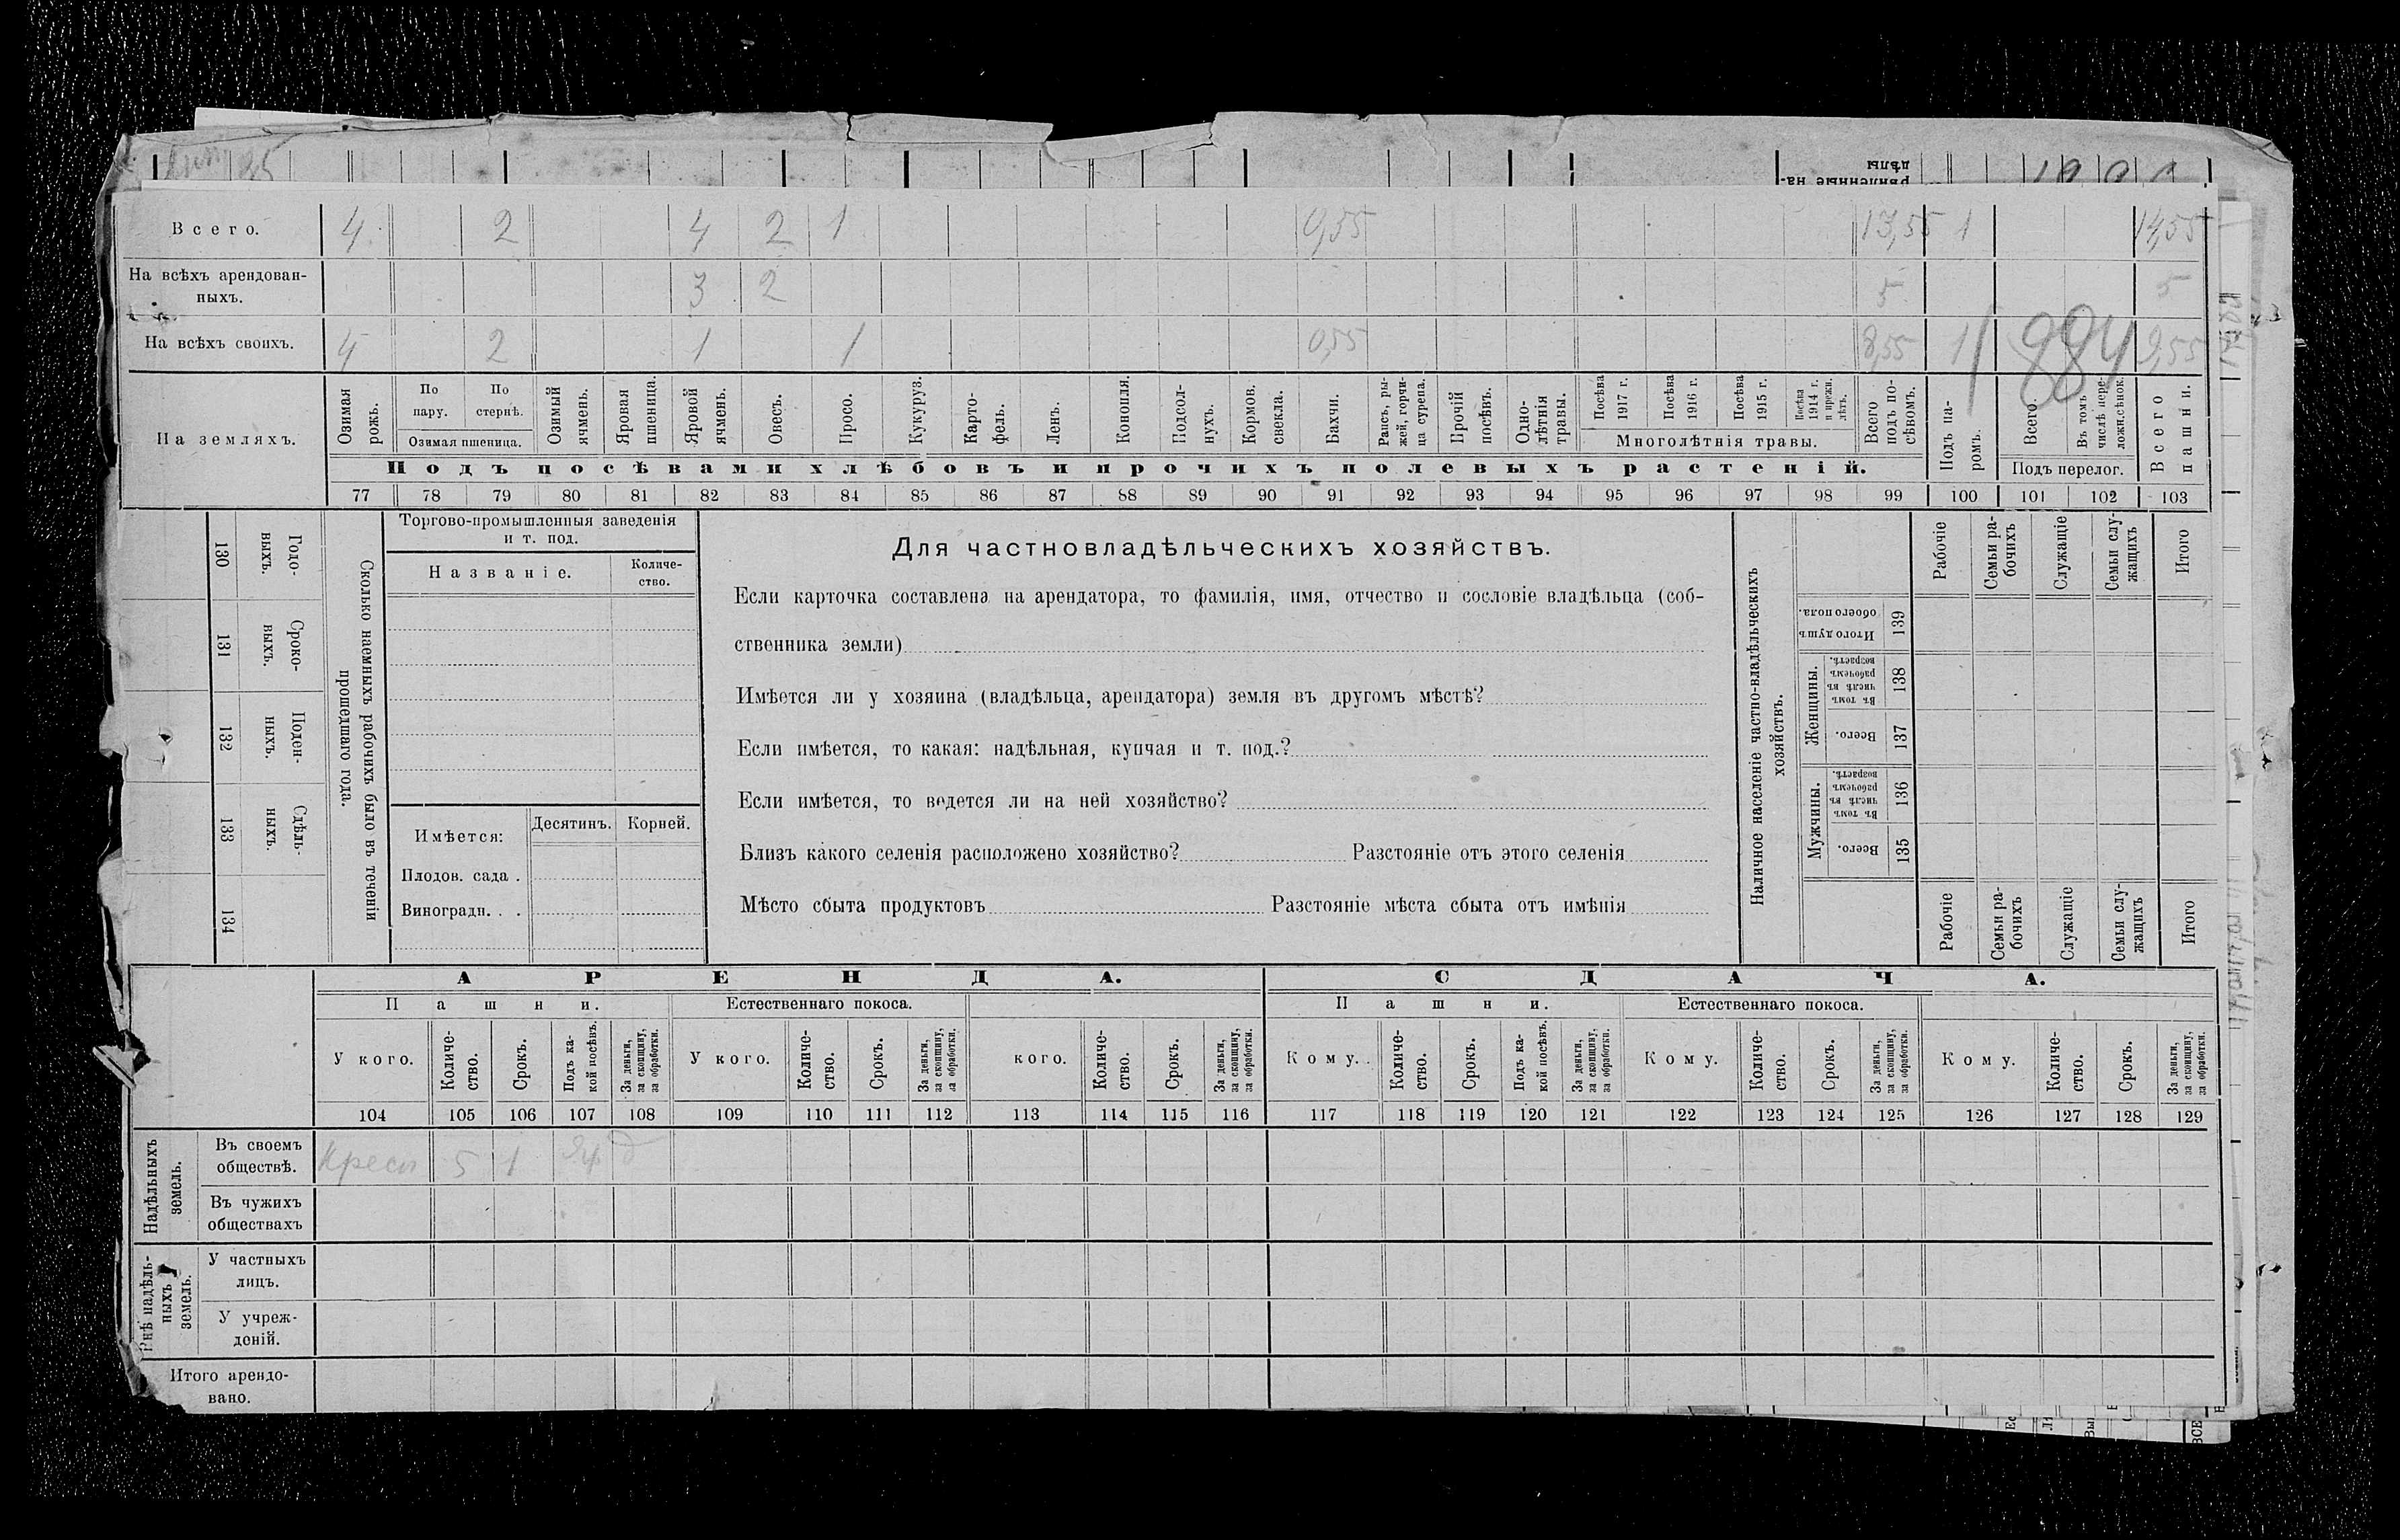 Всего. 4 2 4 2 1 0,55 13,55 1 14,55
На всѣхъ арендован-
ныхъ. 3 2 5 5
На всѣхъ своихъ. 4 2 1 1 0,55 8,55 1 9,55
884
На земляхъ.
Озимая рожь.
По пару.
По стернѣ.
Озимая пшеница.
Озимый ячмень.
Яровая пшеница.
Яровой ячмень.
Овесъ.
Просо.
Кукуруз.
Карто-
фель.
Ленъ.
Конопля.
Подсол-
нухъ.
Кормов. свекла.
Бахчи.
Рапсъ, ры-
жей, горчи-
ца сурепа.
Прочій посѣвъ.
Одно-
лѣтнія травы.
Посѣва 1917 г.
Посѣва 1916 г.
Посѣва 1915 г.
Посѣва 1914 г. и прежн. лѣтъ.
Многолѣтнія травы.
Всего подъ по-
сѣвомъ.
Подъ посѣвами хлѣбовъ и прочихъ полевыхъ растеній.
Подъ па-
ромъ.
Всего.
Въ томъ числѣ пере-
ложн.сѣнок.
Подъ перелог.
Всего пашни.
77 78 79 80 81 82 83 84 85 86 87 88 89 90 91 92 93 94 95 96 97 98 99 100 101 102 103
130 Годо-
выхъ.
131 Сроко-
выхъ.
132 Поден-
ныхъ.
133 Сдѣль-
ныхъ.
134
Сколько наемныхъ рабочихъ было въ теченіи
прошедшаго года.
Торгово-промышленныя заведенія
и т. под.
Названіе.
Количе-
ство.
Имѣется:
Десятинъ. Корней.
Плодов. сада .
Виноградн. . .
Для частновладѣльческихъ хозяйствъ.
Если карточка составлена на арендатора, то фамилія, имя, отчество и сословіе владѣльца (соб-
ственника земли)
Имѣется ли у хозяина (владѣльца, арендатора) земля въ другомъ мѣстѣ?
Если имѣется, то какая: надѣльная, купчая и т. под.?
Если имѣется, то ведется ли на ней хозяйство?
Близъ какого селенія расположено хозяйство? Разстояніе отъ этого селенія
Мѣсто сбыта продуктовъ Разстояніе мѣста сбыта отъ имѣнія
Наличное населеніе частно-владѣльческихъ
хозяйствъ.
Рабочіе
Семьи ра-
бочихъ
Служащіе
Семьи слу-
жащихъ
Итого
Итого душъ обоего пола. 139
Женщины.
Въ томъ числѣ въ рабочемъ возрастѣ. 138
Всего. 137
Мужчины.
Въ томъ числѣ въ рабочемъ возрастѣ. 136
Всего. 135
Рабочіе
Семьи ра-
бочихъ
Служащіе
Семьи слу-
жащихъ
Итого
АРЕНДА. СДАЧА.
Пашни. Естественнаго покоса. Пашни. Естественнаго покоса.
У кого.
Количе-
ство.
Срокъ.
Подъ ка-
кой посѣвъ.
За деньги,
за скопщину,
за обработки.
У кого.
Количе-
ство.
Срокъ.
За деньги,
за скопщину,
за обработки.
кого.
Количе-
ство.
Срокъ.
За деньги,
за скопщину,
за обработки.
Кому.
Количе-
ство.
Срокъ.
Подъ ка-
кой посѣвъ.
За деньги,
за скопщину,
за обработки.
Кому.
Количе-
ство.
Срокъ.
За деньги,
за скопщину,
за обработки.
Кому.
Количе-
ство.
Срокъ.
За деньги,
за скопщину,
за обработки.
104 105 106 107 108 109 110 111 112 113 114 115 116 117 118 119 120 121 122 123 124 125 126 127 128 129
Надѣльныхъ
земель.
Въ своемъ
обществѣ. Крест 5 1 д
Въ чужихъ
обществахъ
Внѣ надѣль-
ныхъ
земель.
У частныхъ
лицъ.
У учреж-
деній.
Итого арендо-
вано.